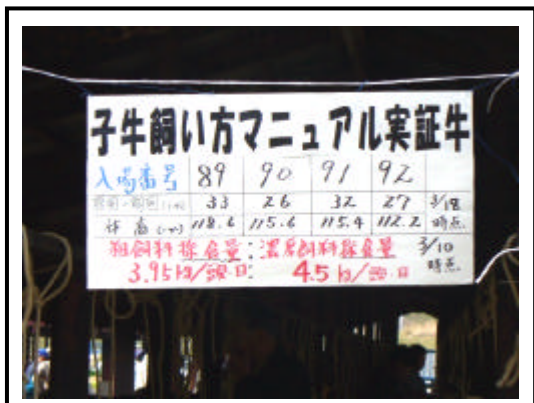 子牛飼い方マニュアル実証牛
入場番号 89 90 91 92
33 26 32 27 3/18
体高(cm) 118.6 115.6 115.4 112.2 時点
粗飼料採食量:濃厚飼料採食量 3/10
3.95kg/頭・日: 4.5kg/頭・日 時点